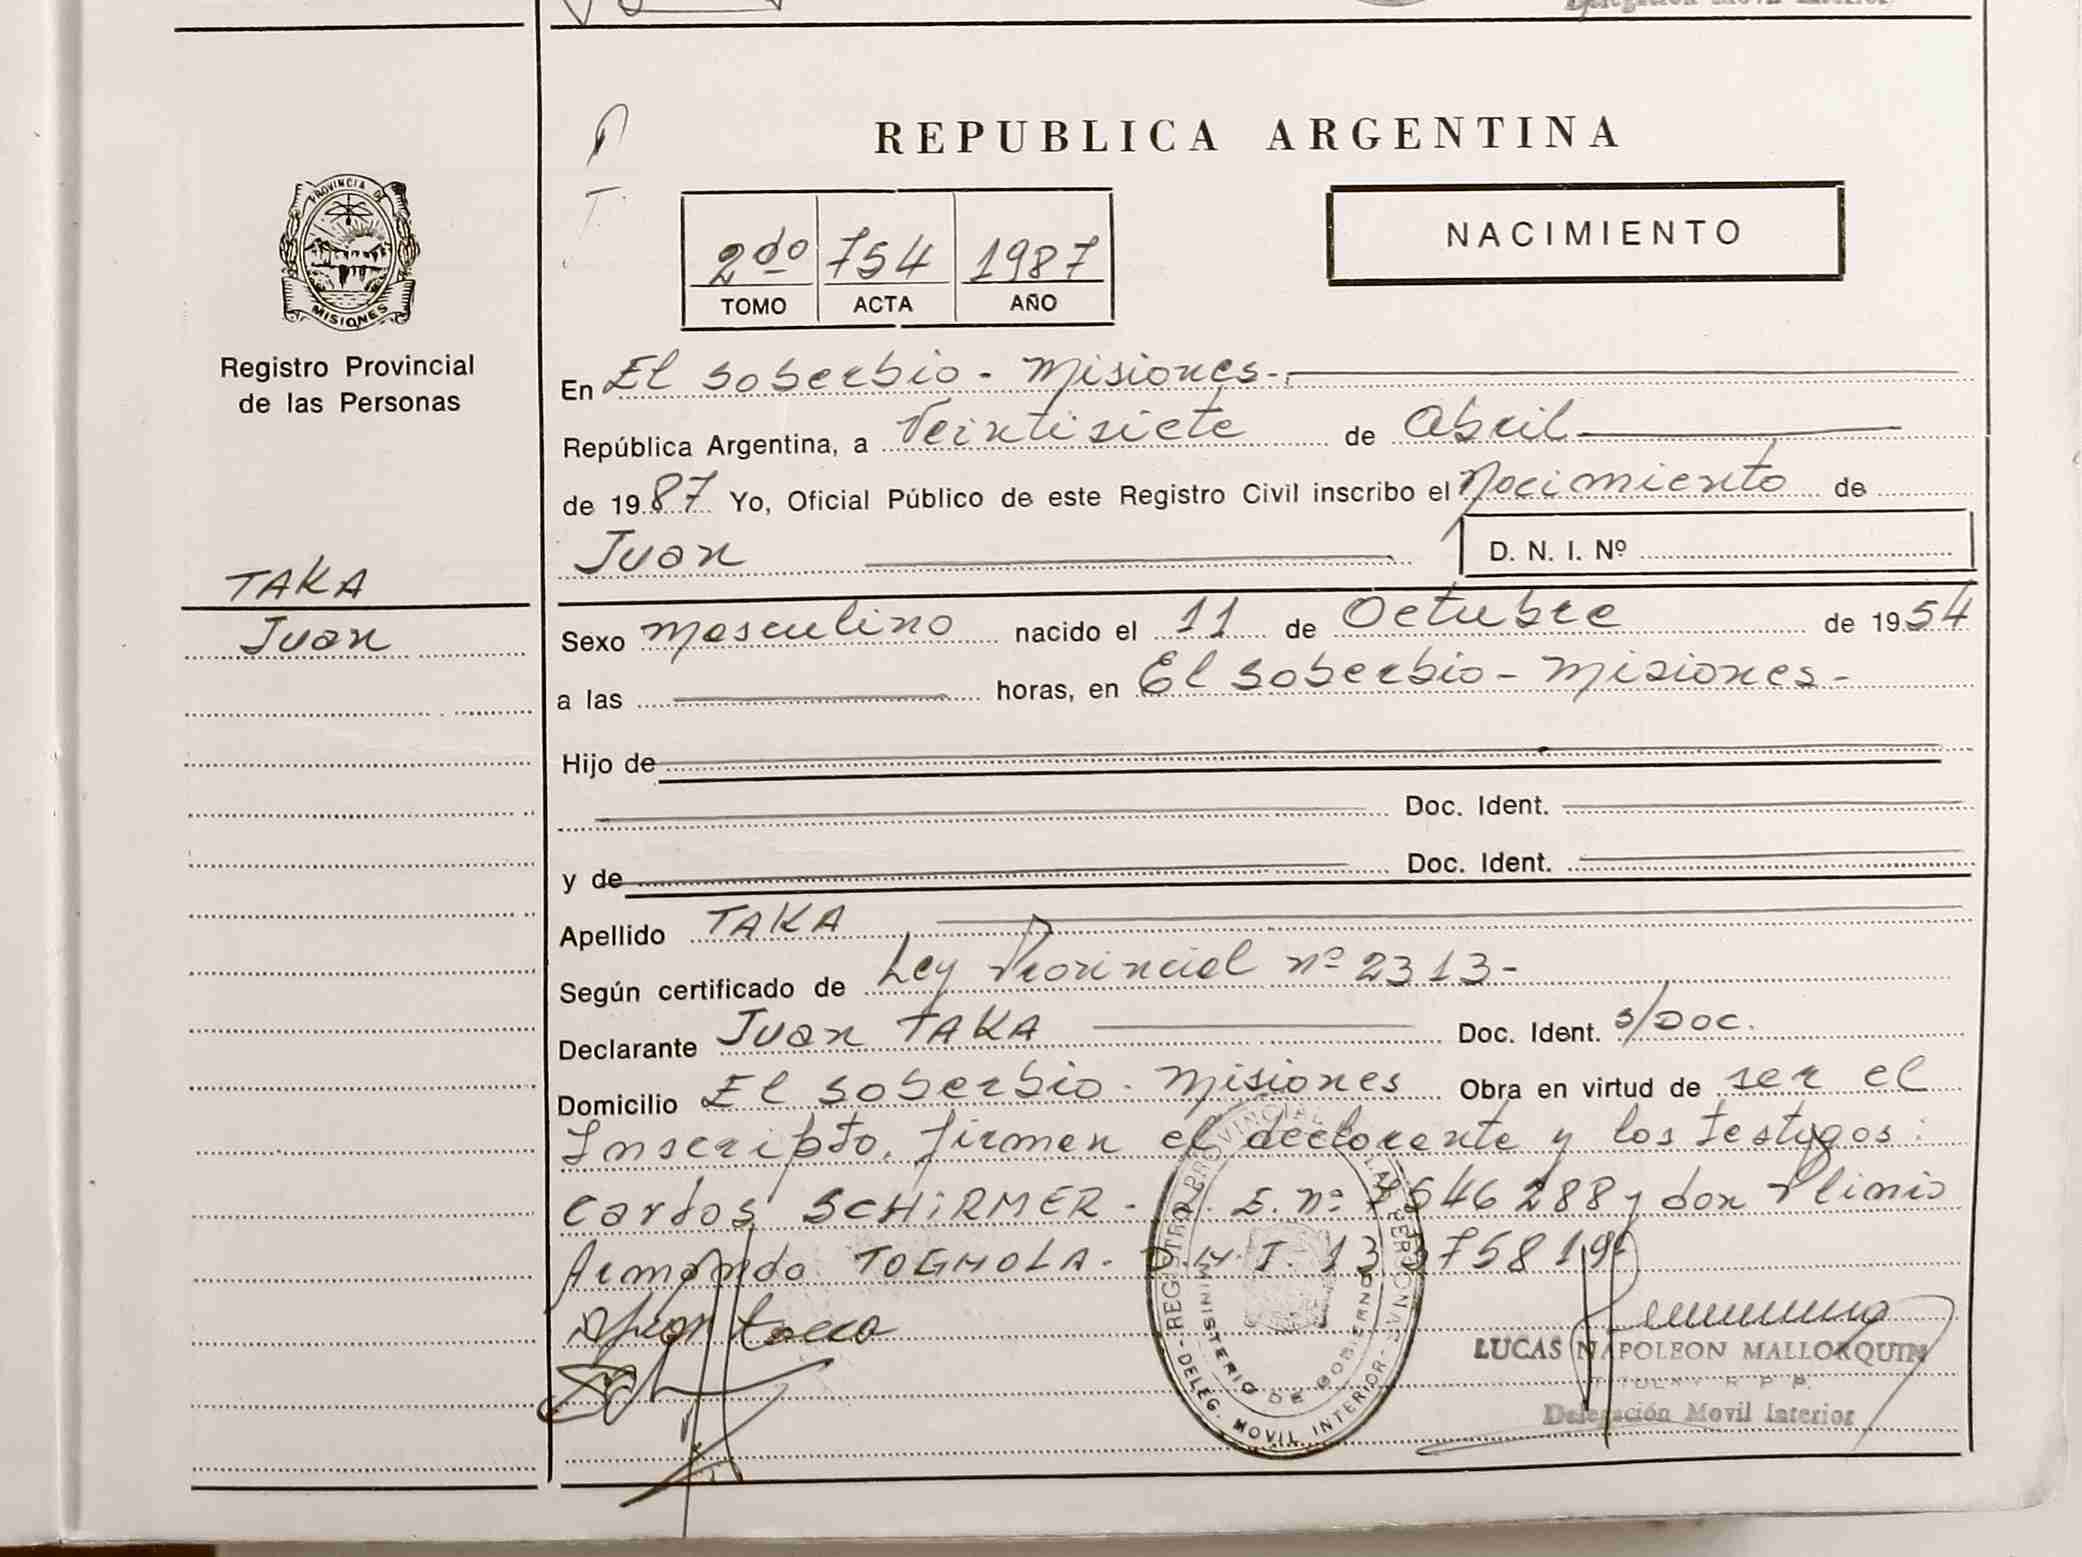 Delegación Movil Interior
REPUBLICA ARGENTINA
PROVINCIA DE
MISIONES
Registro Provincial
de las Personas
2do 754 1987
TOMO ACTA AÑO
NACIMIENTO
En El Soberbio - Misiones -
República Argentina, a Veintisiete de Abril
de 1987 Yo, Oficial Público de este Registro Civil inscribo el Nacimiento de
Juan D. N. I. Nº
TAKA
Juan
Sexo Masculino nacido el 11 de Octubre de 1954
a las horas, en El Soberbio - Misiones -
Hijo de
Doc. Ident.
y de Doc. Ident.
Apellido TAKA
Según certificado de Ley Provincial nº 2313-
Declarante Juan TAKA Doc. Ident. S/DOC.
Domicilio El Soberbio - Misiones Obra en virtud de ser el
Inscripto. Firman el declarante y los testigos:
Carlos SCHIRMER - L. E. nº 7546288 y don Plinio
Armando TOGNOLA - D.N.I. 13375819
REGISTRO PROVINCIAL DE LAS PERSONAS
MINISTERIO DE GOBIERNO
DELEG. MOVIL INTERIOR
LUCAS NAPOLEON MALLORQUIN
Delegación Movil Interior